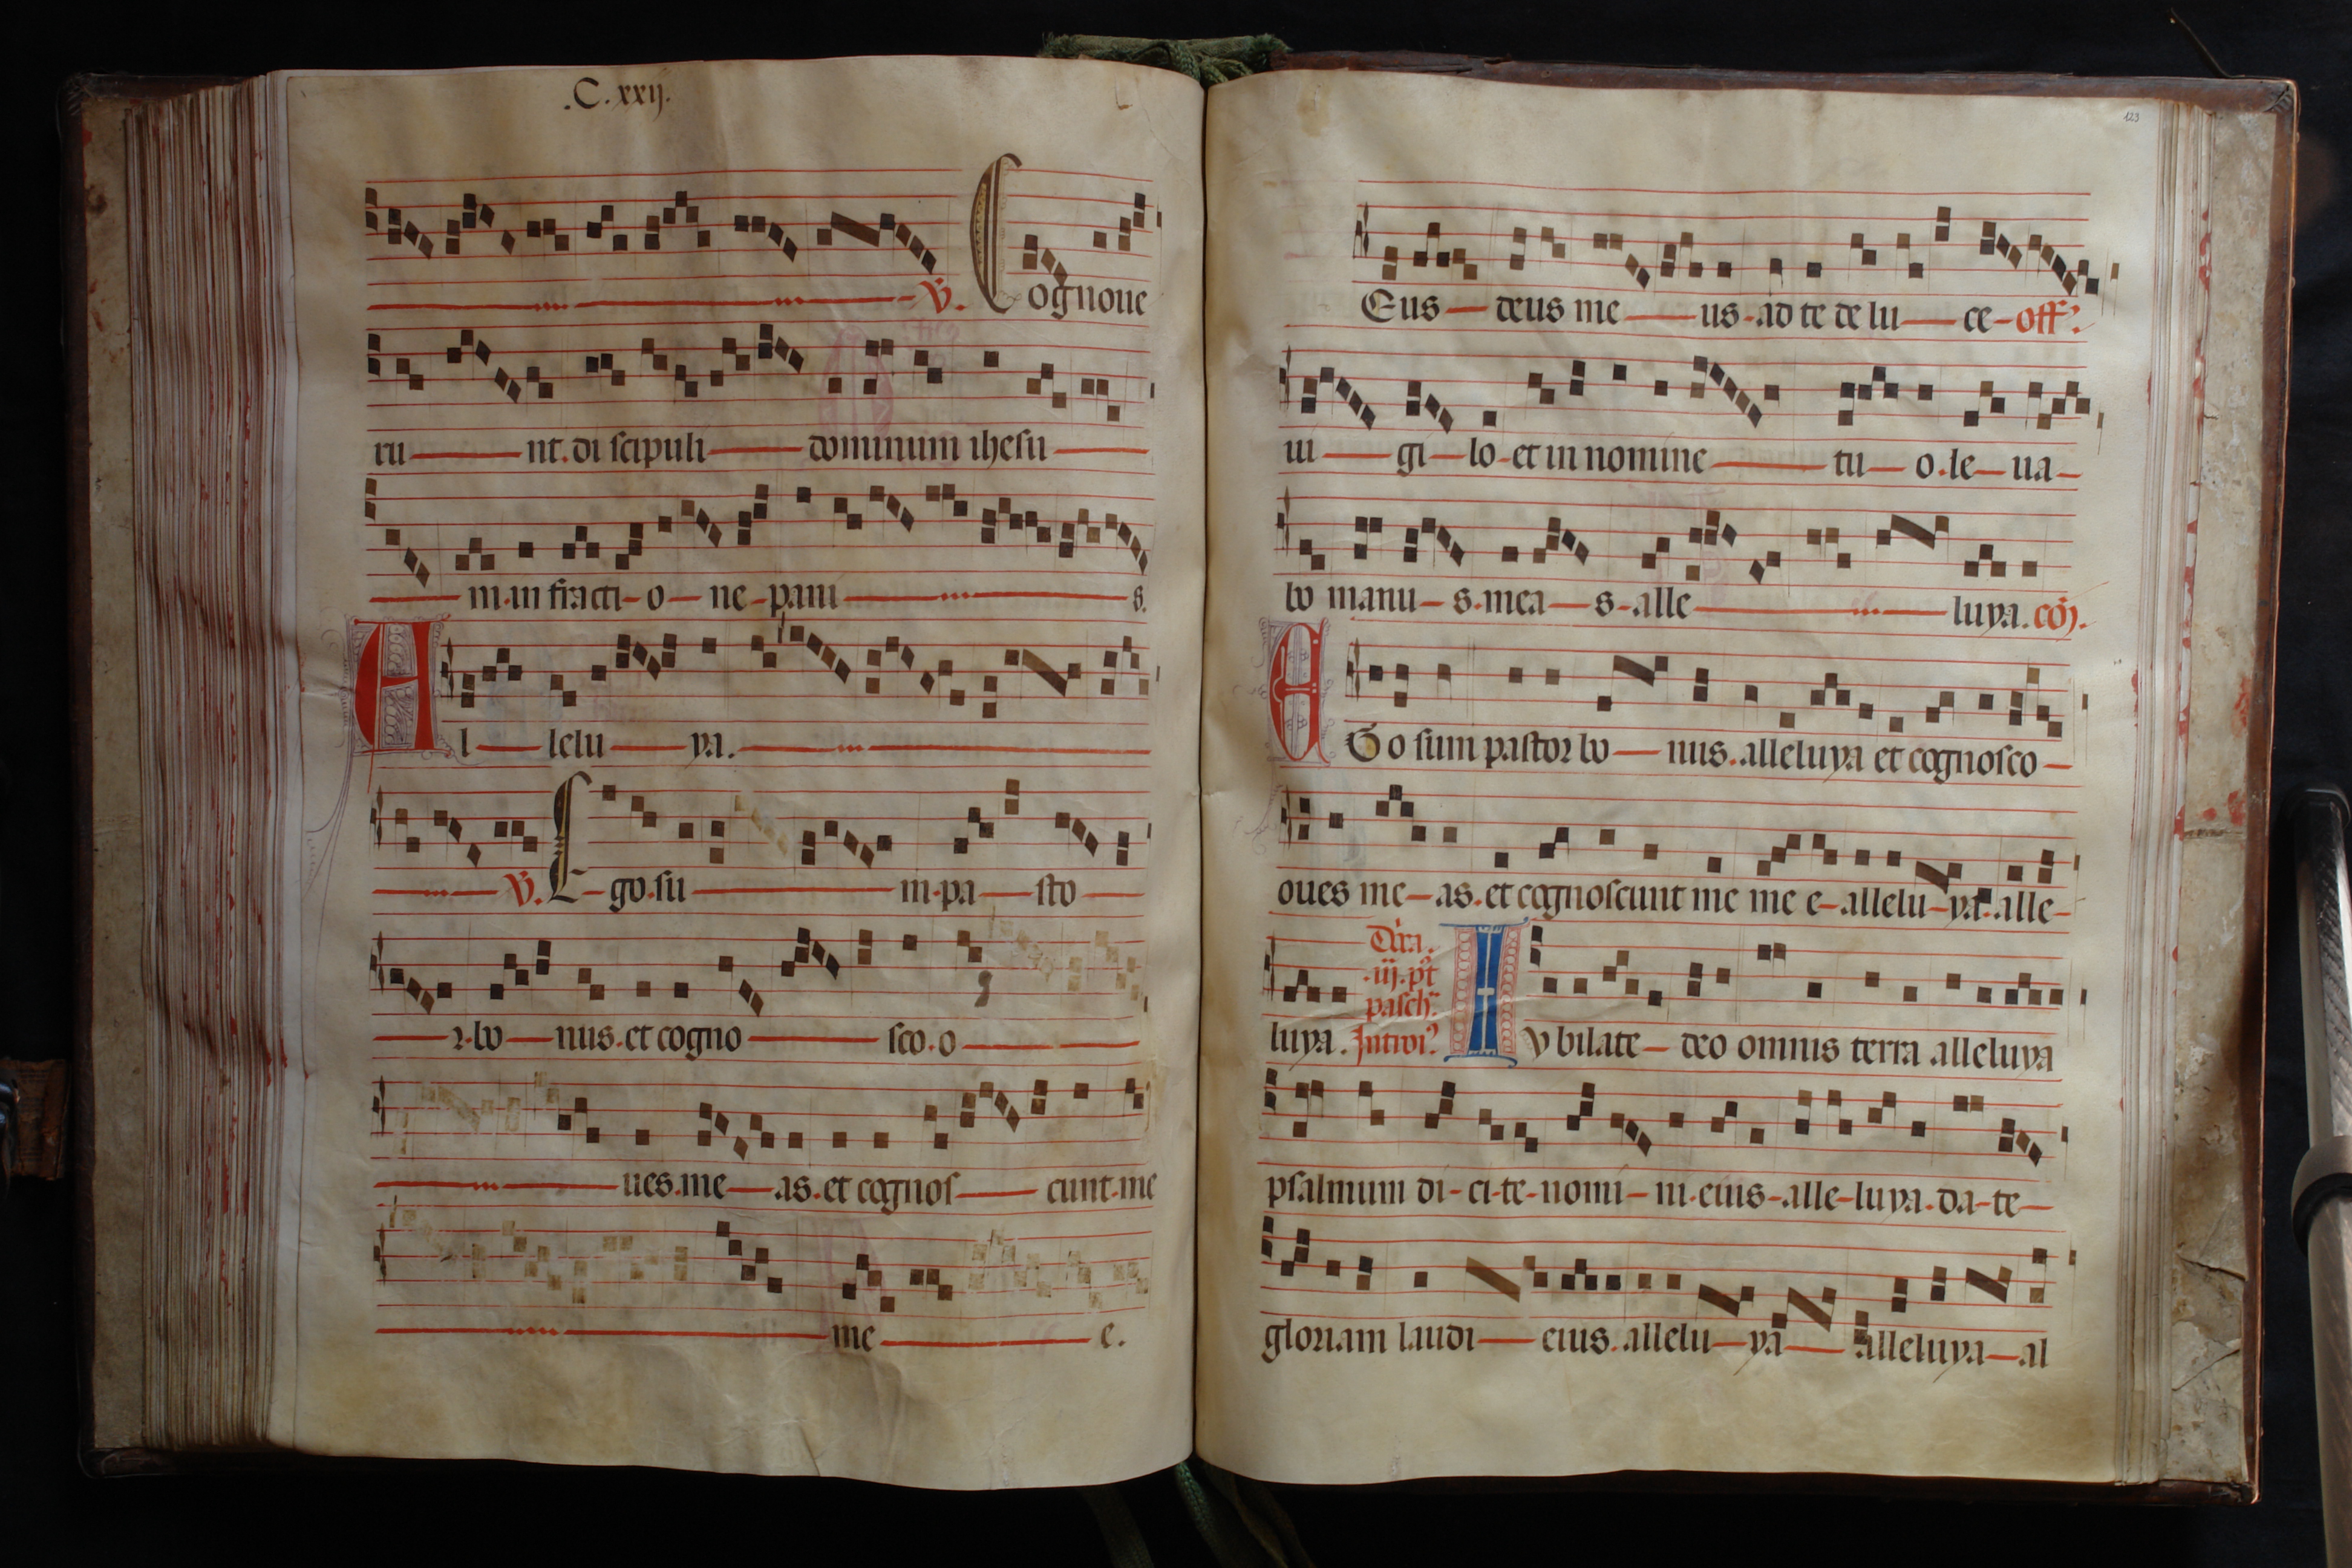 .C.xxij.
V. Cognoue
ru nt. di scipuli dominum ihesu
m. in fracti o ne pani s.
Al lelu ya.
V. E go. su m. pa sto
r. bo nus. et cogno sco. o
ues. me as. et cognos cunt. me
me e.
123
Eus deus me us. ad te de lu ce off
ui gi lo et in nomine tu o. le ua
bo manu s. mea s alle luya. cō.
EGo sum pastor bo nus. alleluya et cognosco
oues me as. et cognoscunt me me e allelu ya. alle
Dn̄ca.
.iij. pt̄
pasch
luya. Introi? Iv bilate deo omnis terra alleluya
psalmum di ci te nomi ni eius alle luya. da te
gloriam laudi eius. allelu ya alleluya al